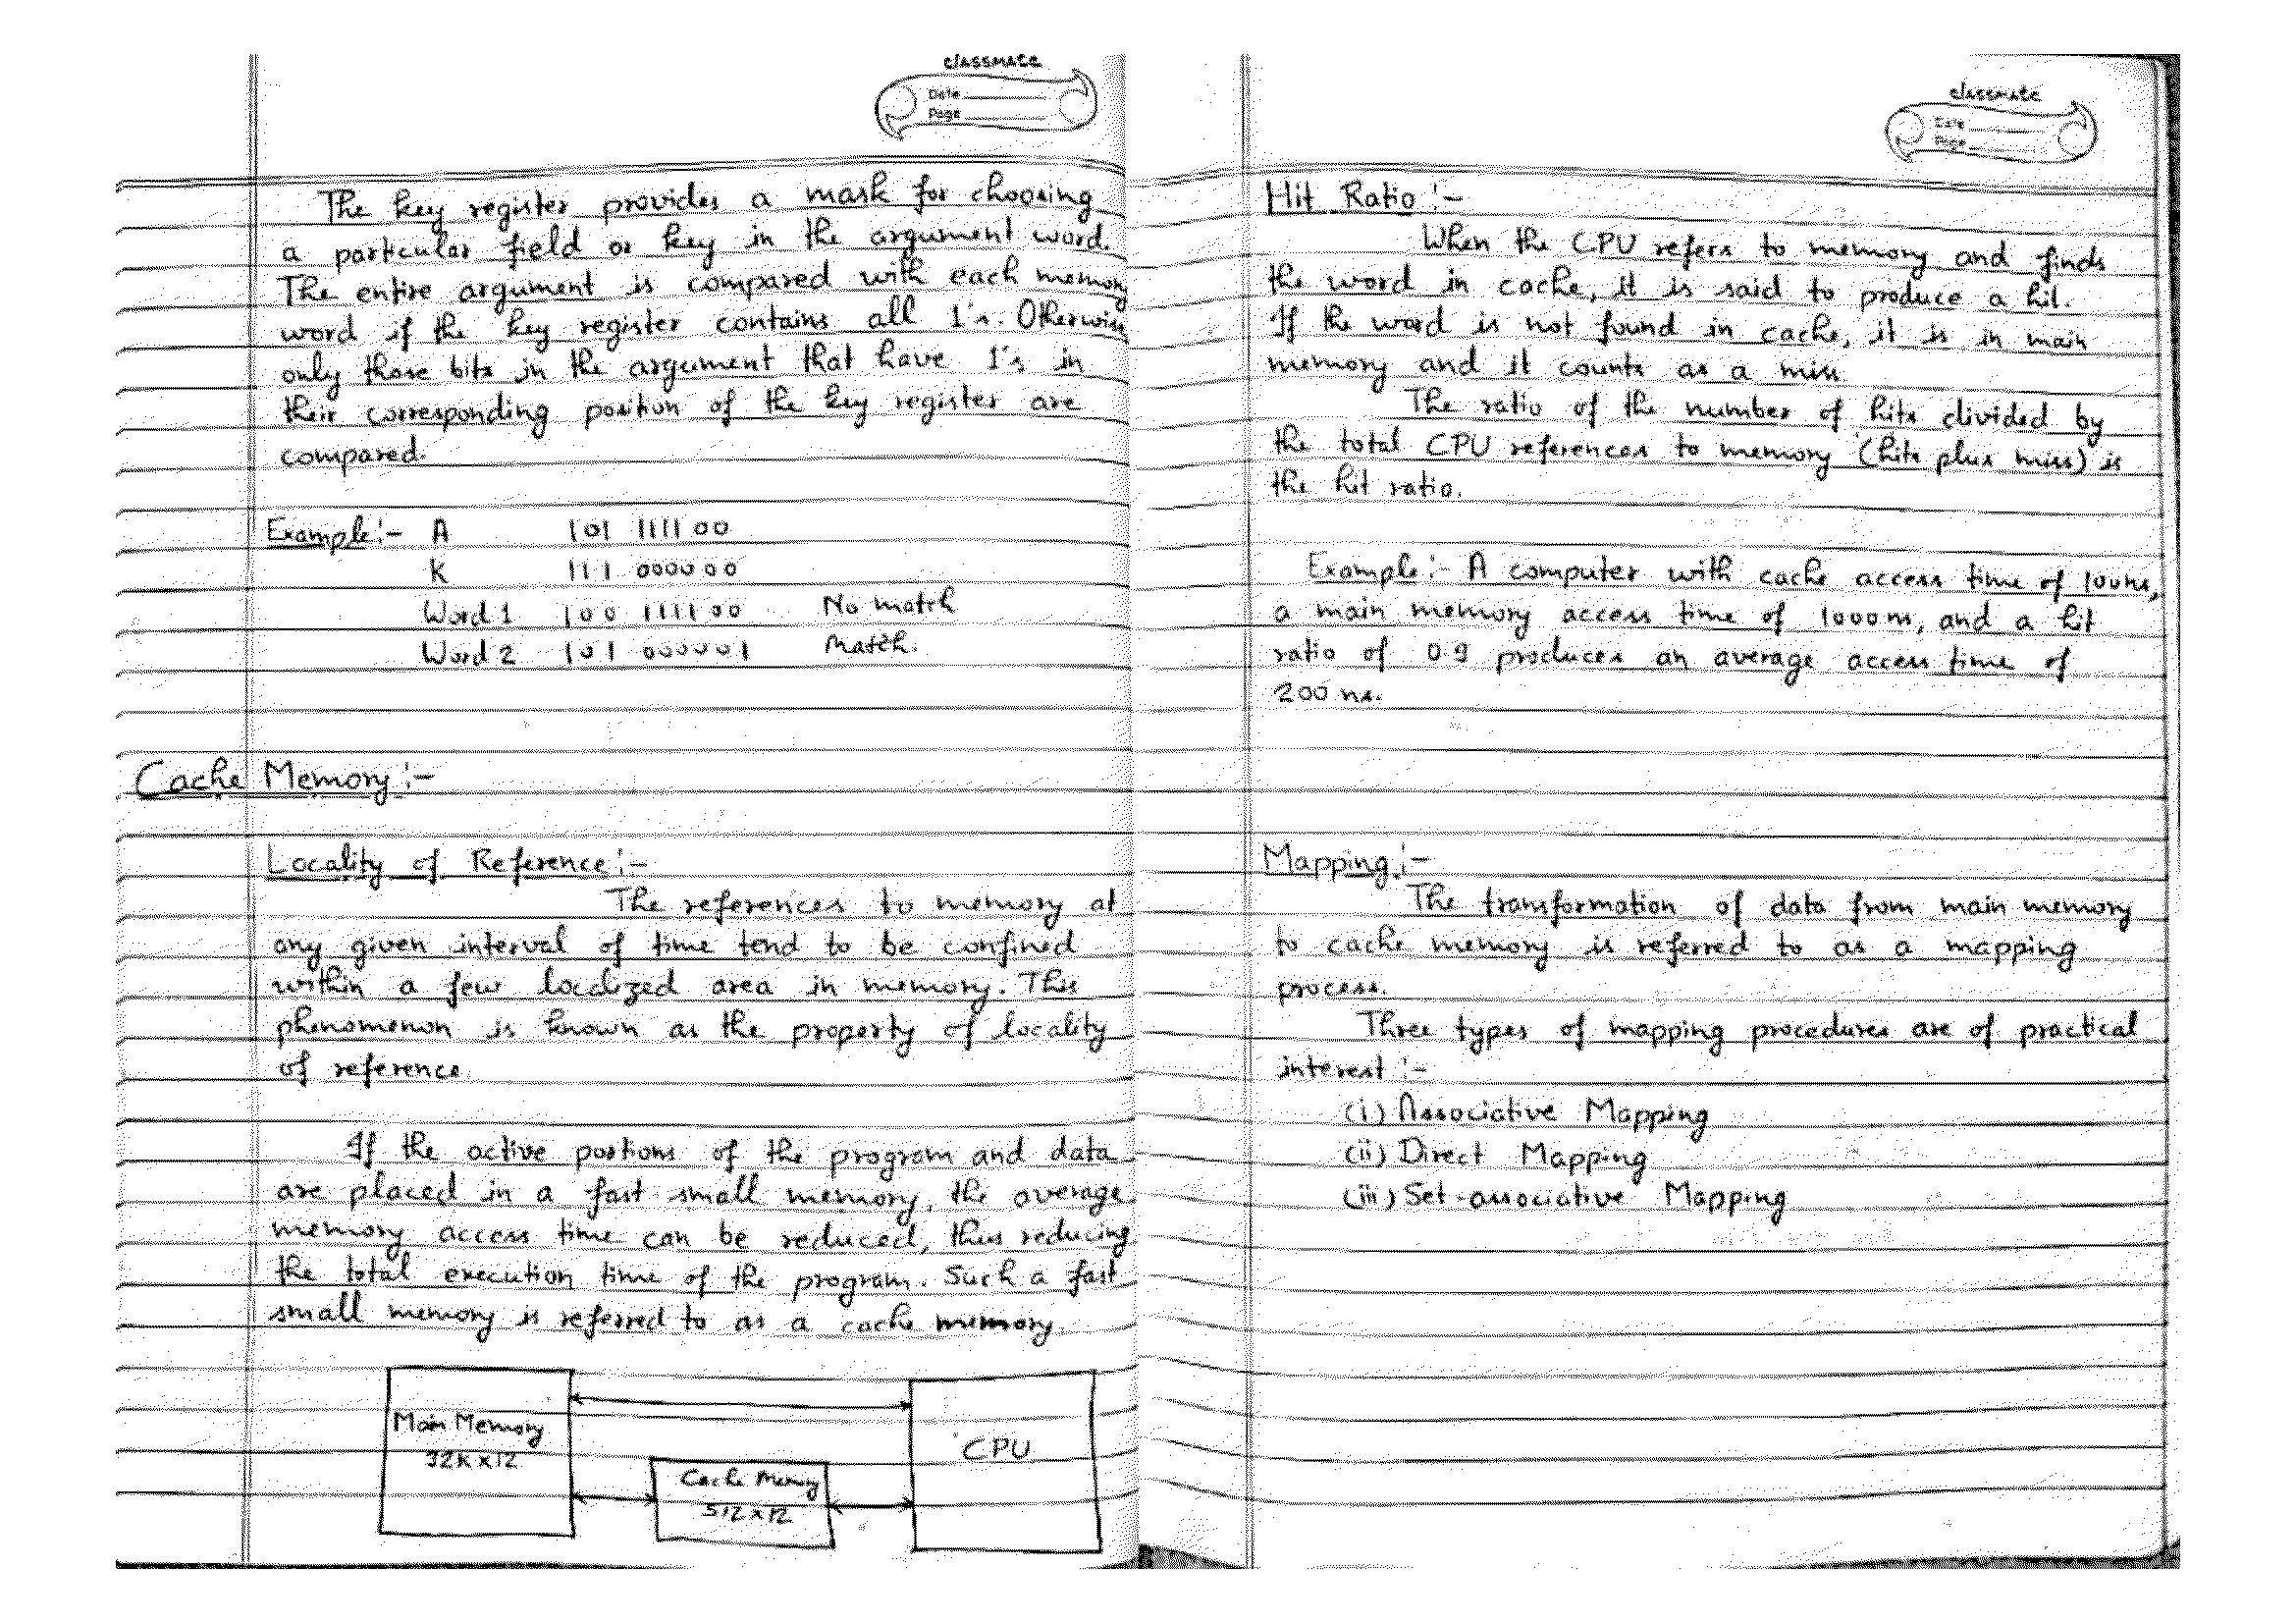 classmate
Date
Page
The key register provides a mask for choosing
a particular field or key in the argument word.
The entire argument is compared with each memory
word if the key register contains all 1's. Otherwise
only those bits in the argument that have 1's in
their corresponding position of the key register are
compared.
Example:- A 101 111100
K 111 000000
Word 1 100 111100 No match
Word 2 101 000001 Match.
Cache Memory:-
Locality of Reference:-
The references to memory at
any given interval of time tend to be confined
within a few localized area in memory. This
phenomenon is known as the property of locality
of reference.
If the active portions of the program and data
are placed in a fast small memory, the average
memory access time can be reduced, thus reducing
the total execution time of the program. Such a fast
small memory is referred to as a cache memory.
Main Memory
32K x 12
Cache Memory
512 x 12
CPU
classmate
Date
Page
Hit Ratio:-
When the CPU refers to memory and finds
the word in cache, it is said to produce a hit.
If the word is not found in cache, it is in main
memory and it counts as a miss
The ratio of the number of hits divided by
the total CPU references to memory (hits plus miss) is
the hit ratio.
Example:- A computer with cache access time of 100ns,
a main memory access time of 1000ns, and a hit
ratio of 0.9 produces an average access time of
200 ns.
Mapping:-
The transformation of data from main memory
to cache memory is referred to as a mapping
process.
Three types of mapping procedures are of practical
interest:-
(i) Associative Mapping
(ii) Direct Mapping
(iii) Set-associative Mapping